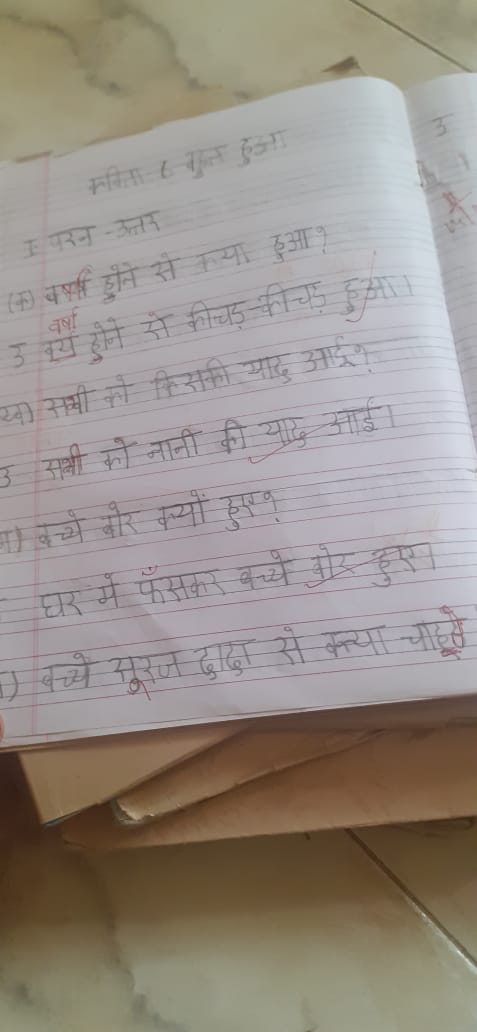 कविता-6 बहुत हुआ
I प्रश्न-उत्तर
(क) वर्षा होने से क्या हुआ?
वर्षा
उ होने से कीचड़-कीचड़ हुआ।
ख) सभी को किसकी याद आई?
उ सभी को नानी की याद आई।
ग) बच्चे बोर क्यों हुए?
घर में फँसकर बच्चे बोर हुए।
बच्चे सूरज दादा से क्या चाहते
उ